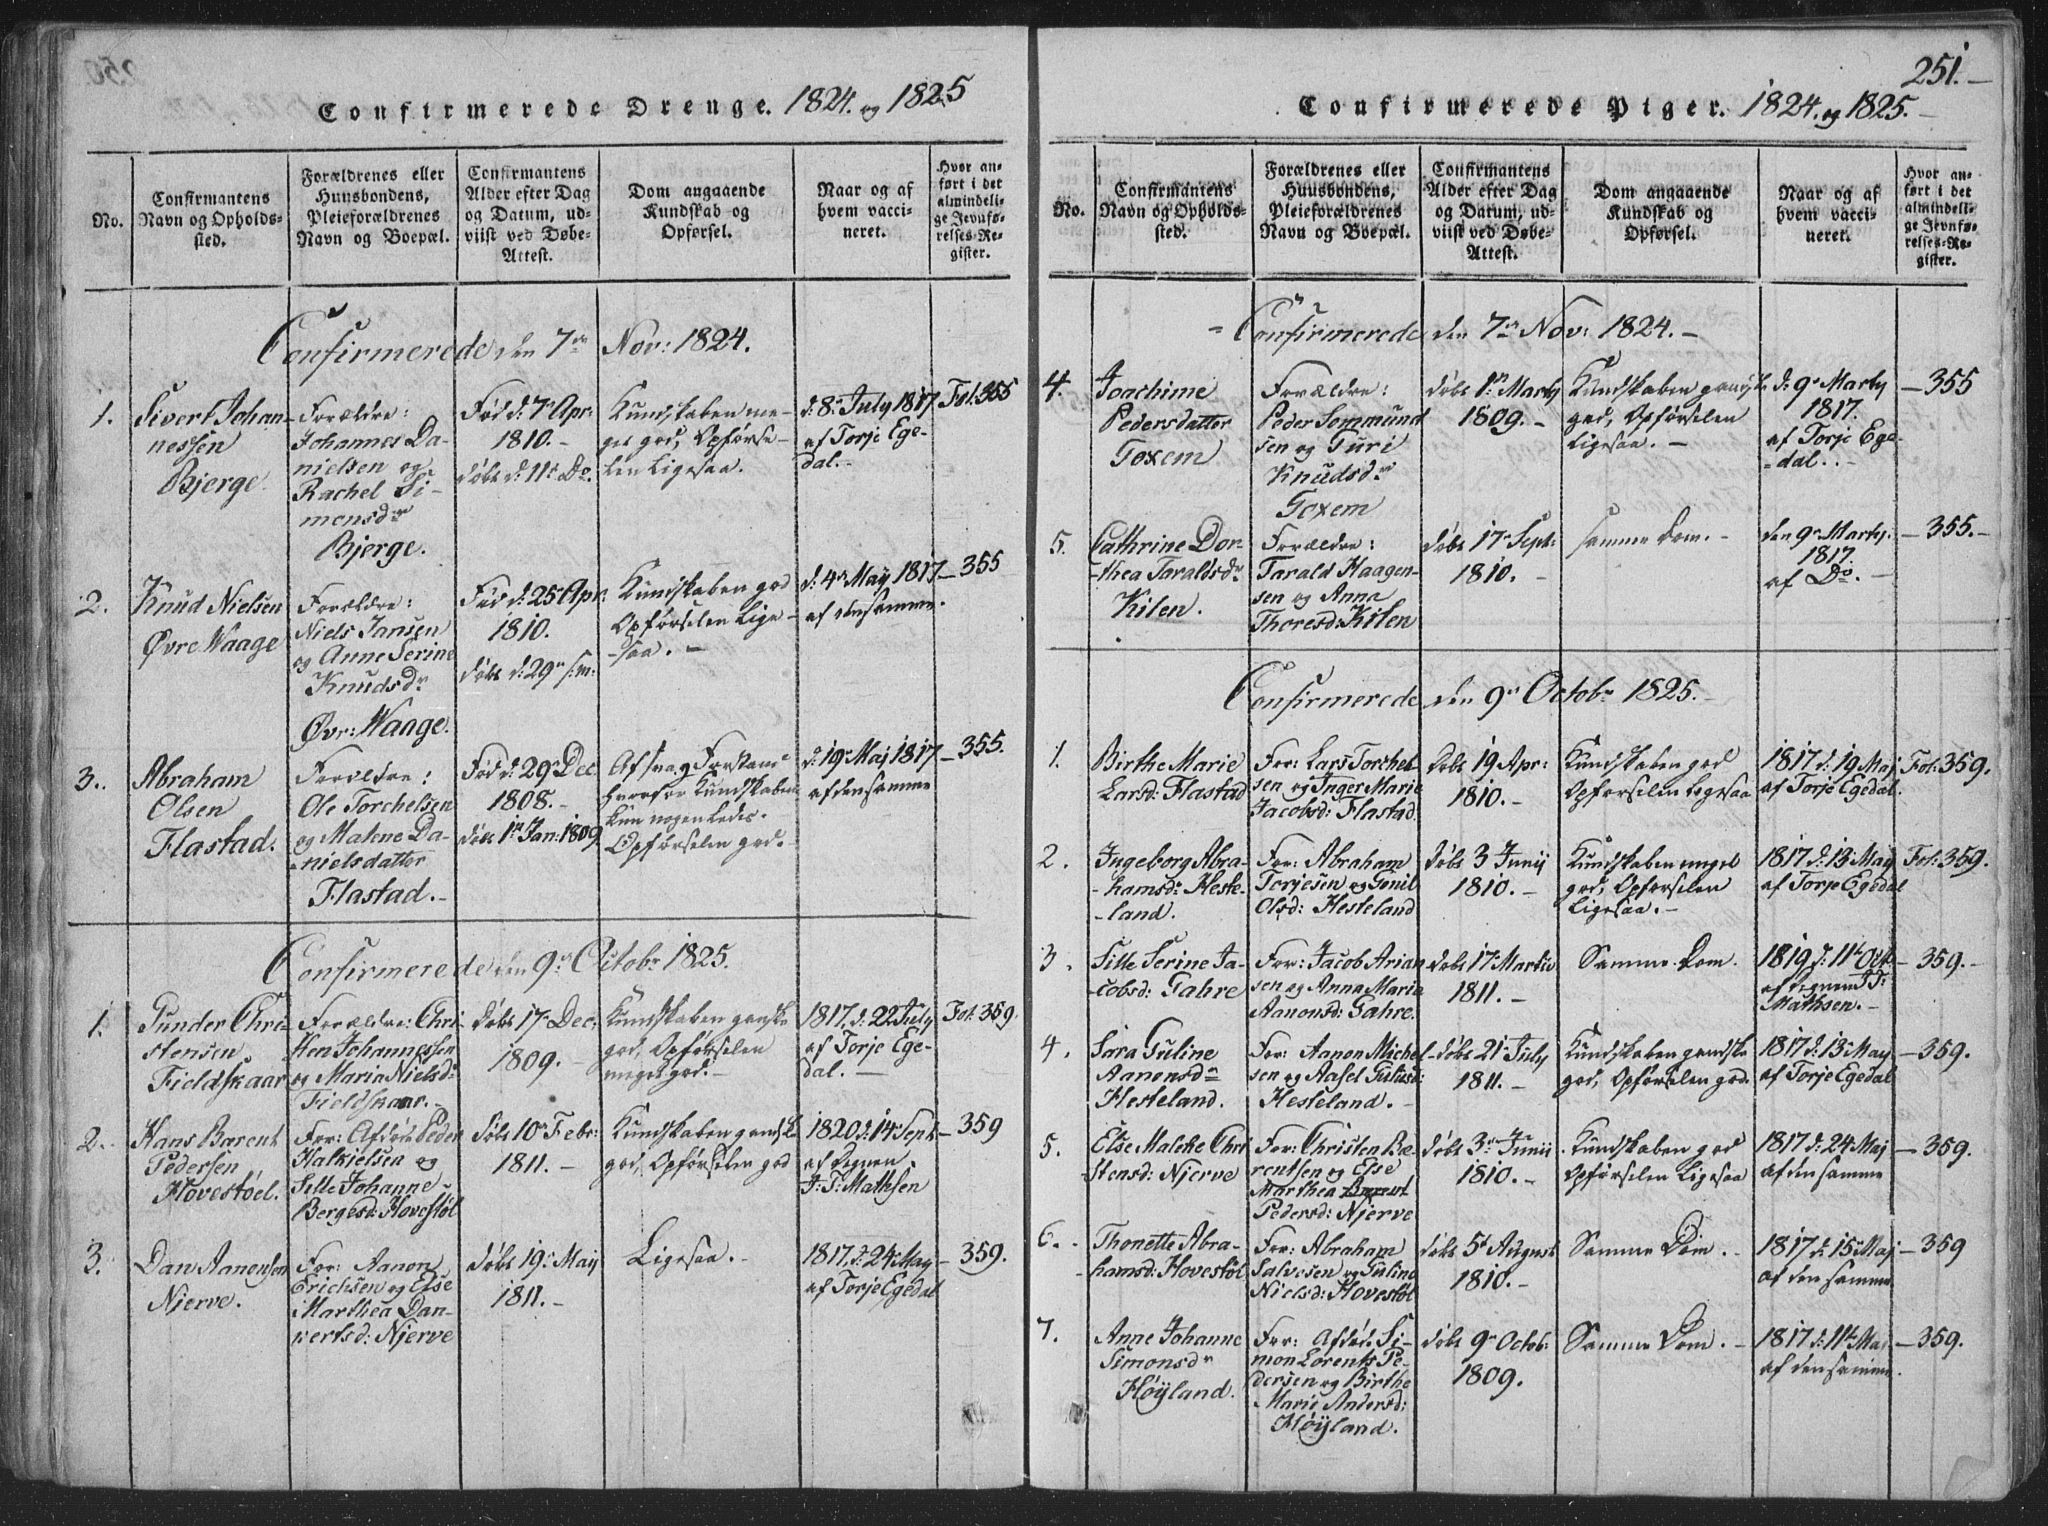 Confirmerede Drenge. 1824. og 1825
No.
Confirmantens
Navn og Opholds-
sted.
Forældrenes eller
Huusbondens,
Pleieforældrenes
Navn og Boepæl.
Confirmantens
Alder efter Dag
og Datum, ud-
viist ved Døbe-
Attest.
Dom angaaende
Kundskab og
Opførsel.
Naar og af
hvem vacci-
neret.
Hvor an-
ført i det
almindeli-
ge Jevnfø-
relses-Re-
gister.
Confirmerede den 7de Nov: 1824.
1.
Sivert Johan-
nessen
Bjerge.
Forældre:
Johannes Da-
nielsen og
Rachel Si-
mensdr
Bjerge.
Fød d: 7de Apr:
1810.-
døbt d: 11te Do.
Kundskaben me-
get god, Opførse-
len ligesaa.
d: 8de July 1817
af Torje Ege-
dal.-
Fol. 355
2.
Knud Nielsen
Øvre Waage
Forældre:
Niels Jansen
og Anne Serine
Knudsdr
Øvr: Waage.
Fød d: 25de Apr:
1810.
døbt d: 29de s:m:
Kundskaben god
Opførselen lige-
-saa. -
d: 4de May 1817-
af den samme.
355
3.
Abraham
Olsen
Flastad.
Forældre:
Ole Torchelsen
og Malene Da-
nielsdatter
Flastad.-
Fød d: 29de Dec.
1808.-
døbt 1te Jan: 1809
Af svag Forstand
hvorfor Kundskaben
kun nogenledes.
Opførselen god.-
d: 19de Maj 1817-
af den samme
355.
Confirmerede den 9de Octobr 1825.
1.
Gunder Chri-
stensen
Fieldskaar
Forældre: Chri-
sten Johannessen
og Maria Nielsd:
Fieldskaar.-
døbt 17de Dec:
1809. -
Kundskaben ganske
god, Opførselen
meget god.-
1817. d: 22 July
af Torje Ege-
dal. -
Fol: 359.
2.
Hans Barent
Pedersen
Hovestøel.
For: Afdøde Peder
Halkjelsen og
Sille Johanne
Bergesd: Hovestøl
Døbt 10de Febr:
1811. -
Kundskaben ganske
god, Opførselen god
1820 d: 14de Sept
af Degnen
J: T: Mathsen
359
3.
Dan Aanensen
Njerve.
For: Aanon
Erichsen og Else
Marthea Dan-
kertsd: Njerve
døbt 19de May
1811. -
Ligesaa.
1817. d: 24 May
af Torje Egedal
359.
251.
Confirmerede Piger. 1824. og 1825.
No.
Confirmantens
Navn og Opholds-
sted.
Forældrenes eller
Huusbondens,
Pleieforældrenes
Navn og Boepæl.
Confirmantens
Alder efter Dag
og Datum, ud-
viist ved Døbe-
Attest.
Dom angaaende
Kundskab og
Opførsel.
Naar og af
hvem vacci-
neret.
Hvor an-
ført i det
almindeli-
ge Jevnfø-
relses-Re-
gister.
Confirmerede den 7de Nov: 1824. -
4.
Joachime
Pedersdatter
Foxem
Forældre:
Peder Sommund
sen og Guri
Knudsdr
Foxem
døbt 1te Martij
1809. -
Kundskaben ganske
god, Opførselen
ligesaa. -
d: 9de Martij
1817.
af Torje Ege-
dal. -
- 355
5.
Cathrine Dor-
thea Taraldsdr
Kilen.
Forældre:
Tarald Haagen-
sen og Anna
Thoresd: Kilen
døbt 17de Sept:
1810. -
samme Dom. -
den 9de Martij
1817.
af Do. -
- 355.-
Confirmerede den 9de Octobr 1825. -
1.
Birthe Marie
Larsd: Flastad
For: Lars Torchel
sen og Inger Marie
Jacobsd: Flastad.
Døbt 19 Apr:
1810. -
Kundskaben god
Opførselen ligesaa
1817 d: 19 Maj
af Torje Egedal.
Fol: 359.
2.
Ingeborg Abra-
hamsd: Heste-
land.
For: Abraham
Torjesen og Gunil
Olsd: Hesteland
døbt 3 Junij
1810. -
Kundskaben meget
god, Opførselen
ligesaa. -
1817 d: 13 May
af Torje Egedal
Fol: 359.
3.
Sille Serine Ja-
cobsd: Gahre
For: Jacob Arian
sen og Anna Maria
Aanonsd: Gahre.
døbt 17 Martii
1811. -
Samme Dom.
1819 d: 11te Oct
af Degnen J:T:
Mathsen. -
359. -
4.
Sara Guline
Aanensdr
Hesteland.
For: Aanon Michel
sen og Aasel Guliksd:
Hesteland. -
døbt 21de July
1811. -
Kundskaben ganske
god, Opførselen god.
1817 d: 13 May
af Torje Egedal
- 359.
5.
Else Malene Chri
stensd: Njerve
For: Christen Ba-
rentsen og Else
Marthea
Pedersd: Njerve
døbt 3de Junii
1810. -
Kundskaben god
Opførselen ligesaa
1817 d: 24 Maj
af den samme
- 359.
6.
Thonette Abra-
hamsd: Hovestøl
For: Abraham
Salvesen og Guline
Nielsd: Hovestøl
døbt 5te August
1810. -
Samme Dom. -
1817 d: 15de Maj
af den samme
- 359
7.
Anne Johanne
Simonsdr
Høyland.
For: Afdøde Si-
mon Lorents Pe-
dersen og Birthe
Marie Andersd:
Høyland.
døbt 9de Octob:
1809.
Samme Dom. -
1817 d: 11te Maj
af den samme
- 359.